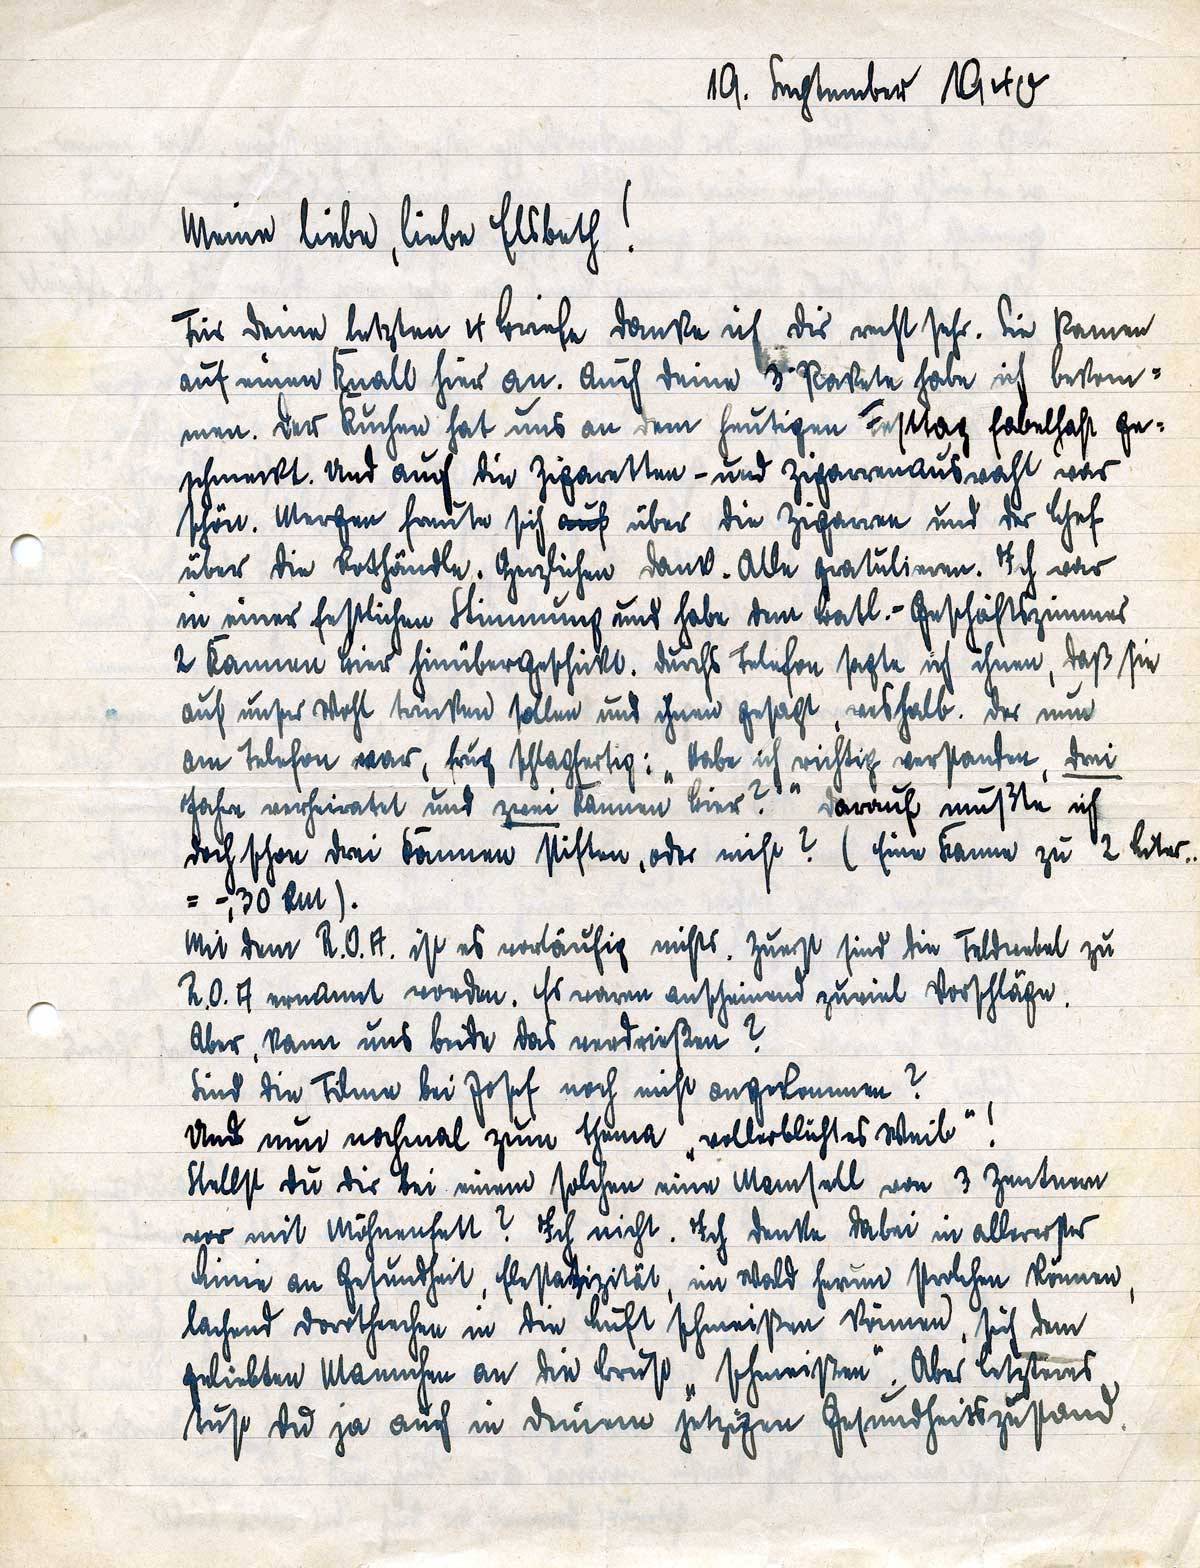 19. September 1940
Meine liebe, liebe Elsbeth!
Für Deine letzten 4 Briefe danke ich Dir recht sehr. Sie kamen
auf einen Knall hier an. Auch Deine 3 Pakete habe ich bekom=
men. Der Kuchen hat uns an dem heutigen Festtag fabelhaft ge=
schmeckt. Und auch die Zigaretten- und Zigarrenauswahl war
schön. Mergen freute sich über die Zigarren und der Chef
über die Rothändle. Herzlichen Dank. Alle gratulieren. Ich war
in einer festlichen Stimmung und habe dem Batl.-Geschäftszimmer
2 Kannen Bier hinübergeschickt. Durchs Telefon sagte ich ihnen, daß sie
auf unser Wohl trinken sollen und ihnen gesagt, weshalb. Der nun
am Telefon war, frug schlagfertig: „Habe ich richtig verstanden, drei
Jahre verheiratet und zwei Kannen Bier?" Darauf mußte ich
doch schon drei Kannen stiften, oder nicht? (Eine Kanne zu 2 Liter..
= -,30 RM).
Mit dem R.O.A. ist es vorläufig nichts. Zuerst sind die Feldwebel zu
R.O.A ernannt worden. Es waren anscheinend zuviel Vorschläge.
Aber, kann uns beide das verdrießen?
Sind die Filme bei Josef noch nicht angekommen?
Und nun nochmal zum Thema „vollerblühtes Weib"!
Stellst Du Dir bei einem solchen eine Mamsell von 3 Zentnern
vor mit Möhnenfett? Ich nicht. Ich denke dabei in allererster
Linie an Gesundheit, Elastizität, im Wald herum strolchen können,
lachend Dorotheechen in die Luft schmeißen können, sich dem
geliebten Mannchen an die Brust „schmeißen". Aber letzteres
tust Du ja auch in Deinem jetzigen Gesundheitszustand.